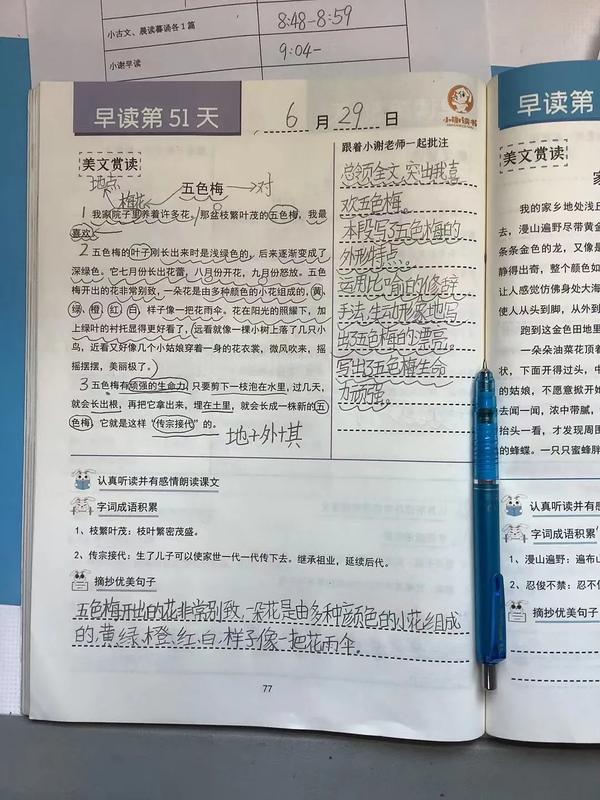 小古文、晨读暮诵各1篇
8:48-8:59
小谢早读
9:04-
早读第 51 天
6 月 29 日
美文赏读
跟着小谢老师一起批注
地点
梅花
五色梅
对
1 我家院子里养着许多花。那盆枝繁叶茂的五色梅，我最
喜欢。
2 五色梅的叶子刚长出来时是浅绿色的，后来逐渐变成了
深绿色。它七月份长出花蕾，八月份开花，九月份怒放。五色
梅开出的花非常别致，一朵花是由多种颜色的小花组成的。黄、
绿、橙、红、白，样子像一把花雨伞。花在阳光的照耀下，加
上绿叶的衬托显得更好看了，远看就像一棵小树上落了几只小
鸟，近看又好像几个小姑娘穿着一身的花衣裳，微风吹来，摇
摇摆摆，美丽极了。
3 五色梅有顽强的生命力，只要剪下一枝泡在水里，过几天，
就会长出根，再把它拿出来，埋在土里，就会长成一株新的五
色梅，它就是这样“传宗接代”的。
地+外+其
总领全文，突出我喜
欢五色梅。
本段写了五色梅的
外形特点。
运用比喻的修辞
手法，生动形象地写
出了五色梅的漂亮。
写出了五色梅生命
力顽强。
认真听读并有感情朗读课文
字词成语积累
1、枝繁叶茂：枝叶繁密茂盛。
2、传宗接代：生了儿子可以使家世一代一代传下去。继承祖业，延续后代。
摘抄优美句子
五色梅开出的花非常别致，一朵花是由多种颜色的小花组成
的，黄、绿、橙、红、白，样子像一把花雨伞。
77
早读第
美文赏读
我的家乡地处浅丘
去，漫山遍野尽带黄金
条条金色的龙，又像是
静得出奇，整个颜色如
让人感觉仿佛身处大海
使人从头到脚，从外到
跑到这金色田地里
一朵朵油菜花顶着
状，下面开得过头，中
的姑娘，不愿意掀开她
去闻一闻，浓中带腻，
抬头一看，才发现周围
的蜂蝶。一只只蜜蜂胖
认真听读并有
字词成语积累
1、漫山遍野：遍布山
2、忍俊不禁：忍不住
摘抄优美句子